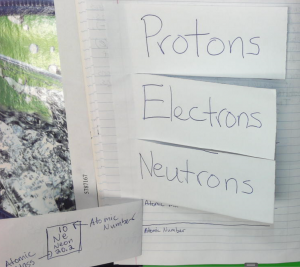 Protons
Electrons
Neutrons
Atomic Number
10
Ne
Neon
20.2
Atomic
Number
Atomic
Mass